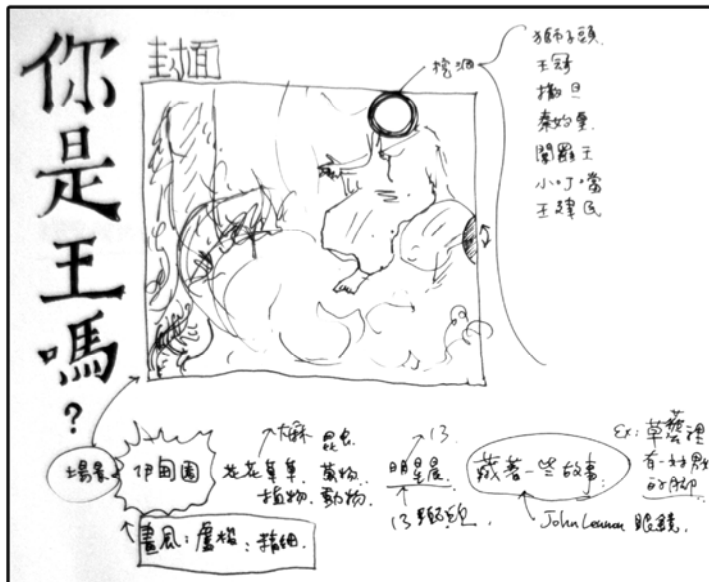 你是王嗎?
封面
挖洞
獅子頭
王冠
撒旦
秦始皇
閻羅王
小叮噹
王建民
場景
伊甸園
花花草草
大麻
昆虫
植物
動物
明星晨
13
藏著一些故事
John Lennon 眼鏡
Ex: 草叢裡
有一對男女
的脚
畫風:盧梭:精細